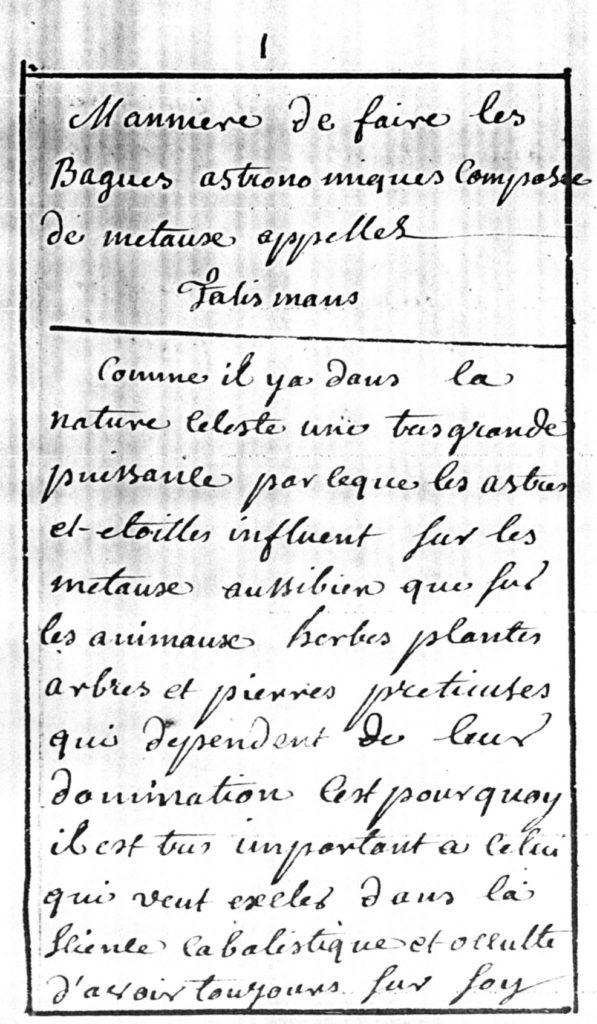 1
Manniere de faire les
Bagues astronomiques Composée
de metaux appelles
Talismans
Comme il ya dans la
nature Celeste une tres grande
puissance par leque les astres
et etoilles influent sur les
metaux aussibien que sur
les animaux herbes plantes
arbres et pierres pretieuses
qui dependent de leur
domination Cest pourquoy
il est tres important a Celui
qui veut exceler dans la
Science Cabalistique et occulte
d'avoir toujours sur soy